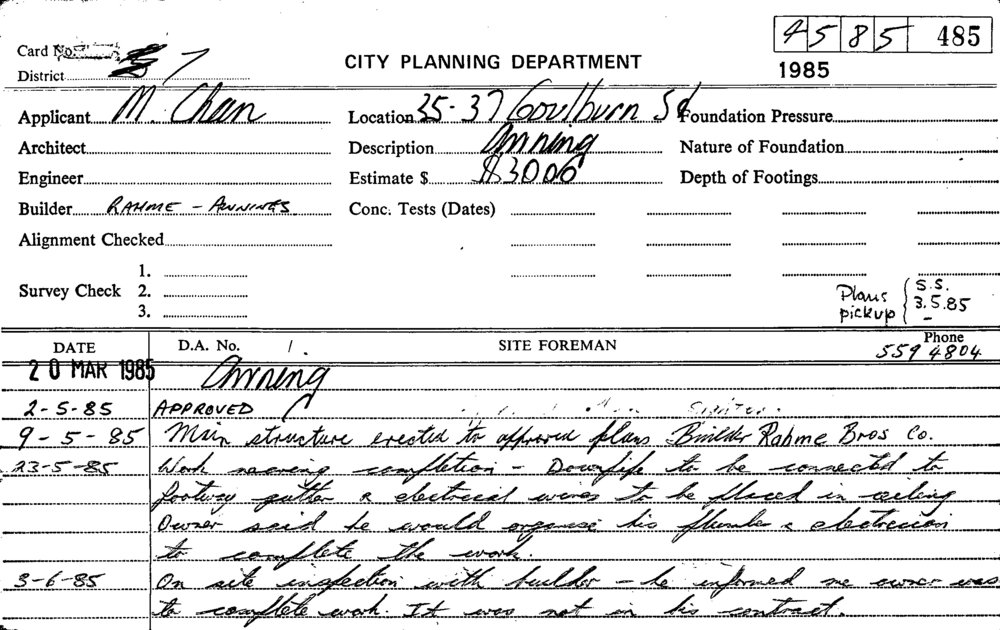 4585 485
Card No.
CITY PLANNING DEPARTMENT
District 7
1985
Applicant M. Chan Location 35-37 Goulburn St Foundation Pressure
Architect Description Awning Nature of Foundation
Engineer Estimate $ $3000 Depth of Footings
Builder RAHME - AWNINGS Conc. Tests (Dates)
Alignment Checked
1.
Survey Check 2.
3.
Plans pickup { S.S. 3.5.85
DATE D.A. No. / . SITE FOREMAN Phone 559 4804
20 MAR 1985 Awning
2-5-85 APPROVED
9-5-85 Main structure erected to approved plans Builder Rahme Bros Co.
23-5-85 Work nearing completion - Downpipe to be connected to
footway gutter & electrical wires to be placed in ceiling
Owner said he would organise his plumber & electrician
to complete the work.
3-6-85 On site inspection with builder - he informed me owner was
to complete work. It was not in his contract.